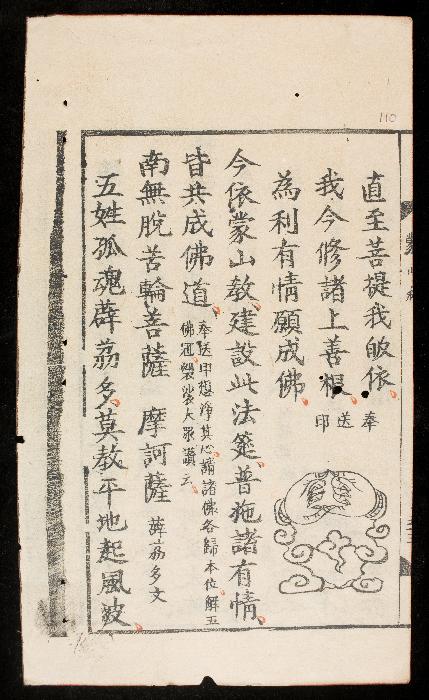 110
直至菩提我皈依
我今修諸上善根 奉送印
為利有情願成佛
今依蒙山教建設此法筵普施諸有情
皆共成佛道 奉送印想淨其心誦諸佛各歸本位解五
佛冠袈裟大眾讚云
南無脫苦輪菩薩 摩訶薩 薜荔多文
五姓孤魂薜荔多莫教平地起風波